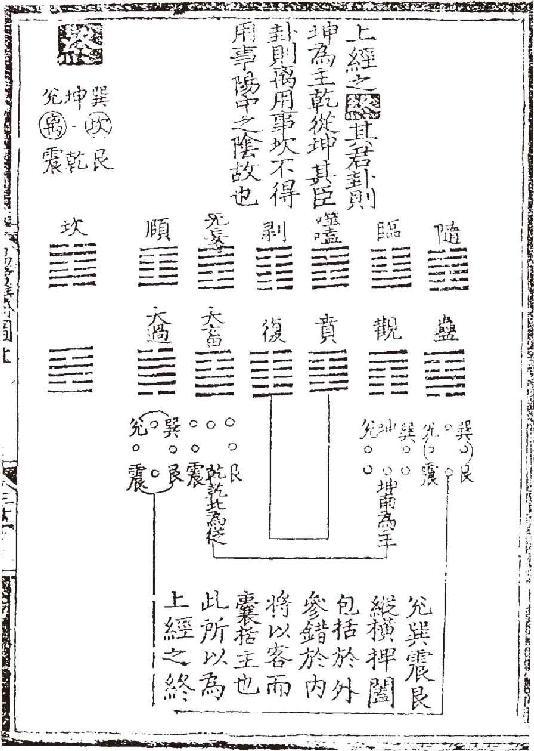 上經之終其君卦則
坤為主乾從坤其臣
卦則离用事坎不得
用事陽中之陰故也
終
巽坤兌
坎离
艮乾震
隨
臨
噬嗑
剥
无妄
頤
坎
蠱
觀
賁
復
大畜
大過
巽艮
兌震
巽
坤
兌
坤南為主
艮
乾
乾北為從
震
巽艮
兌震
兌巽震艮
縱橫捭闔
包括於外
參錯於內
將以客而
囊括主也
此所以為
上經之終